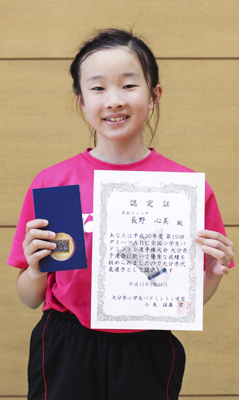 認定証
日出ジュニア
長野 心美 殿
あなたは平成30年度 第19回
ダイハツABC全国小学生バ
ドミントン選手権大会 大分県
予選会に於いて優秀な成績を
収められましたので大分県代
表選手として認定します
大分県小学生バドミントン連盟